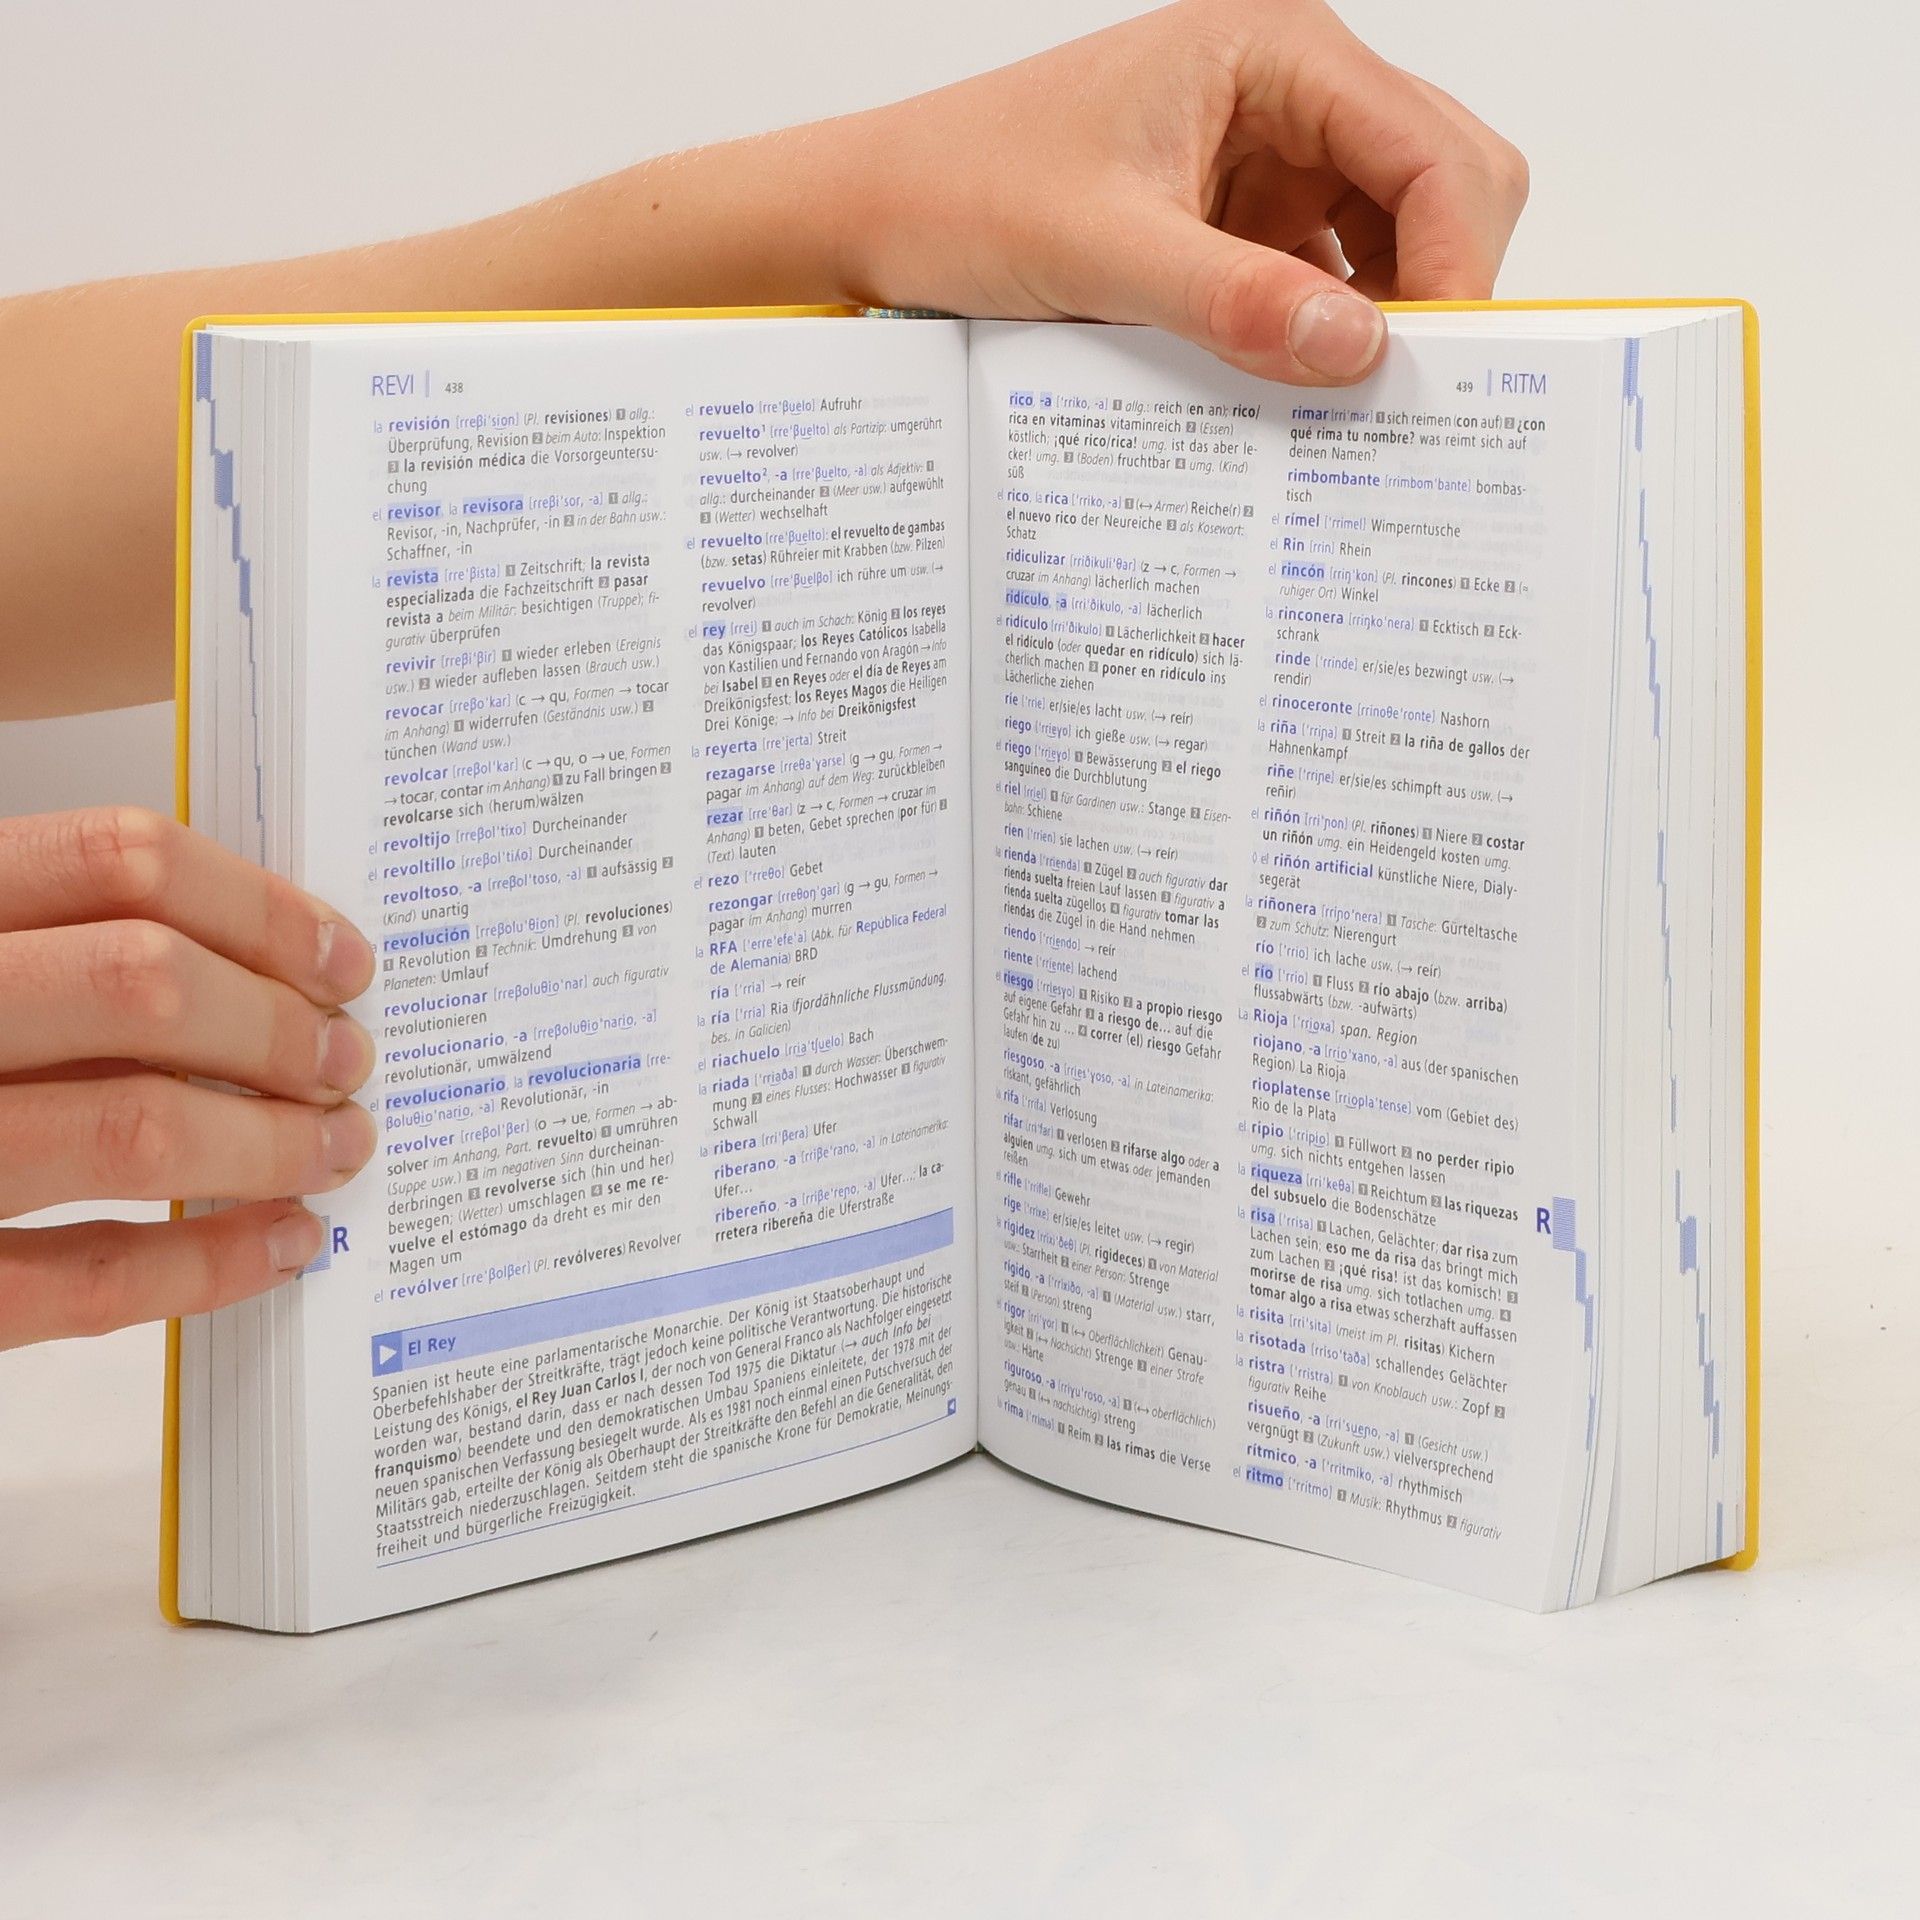 REVI | 438
la revisión [rreβi'sion] (Pl. revisiones) 1 allg.:
Überprüfung, Revision 2 beim Auto: Inspektion
3 la revisión médica die Vorsorgeuntersu-
chung
el revisor, la revisora [rreβi'sor, -a] 1 allg.:
Revisor, -in, Nachprüfer, -in 2 in der Bahn usw.:
Schaffner, -in
la revista [rre'βista] 1 Zeitschrift; la revista
especializada die Fachzeitschrift 2 pasar
revista a beim Militär: besichtigen (Truppe); fi-
gurativ überprüfen
revivir [rreβi'βir] 1 wieder erleben (Ereignis
usw.) 2 wieder aufleben lassen (Brauch usw.)
revocar [rreβo'kar] (c → qu, Formen → tocar
im Anhang) 1 widerrufen (Geständnis usw.) 2
tünchen (Wand usw.)
revolcar [rreβol'kar] (c → qu, o → ue, Formen
→ tocar, contar im Anhang) 1 zu Fall bringen 2
revolcarse sich (herum)wälzen
el revoltijo [rreβol'tixo] Durcheinander
el revoltillo [rreβol'tiʎo] Durcheinander
revoltoso, -a [rreβol'toso, -a] 1 aufsässig 2
(Kind) unartig
revolución [rreβolu'θion] (Pl. revoluciones)
1 Revolution 2 Technik: Umdrehung 3 von
Planeten: Umlauf
revolucionar [rreβoluθio'nar] auch figurativ
revolutionieren
revolucionario, -a [rreβoluθio'nario, -a]
revolutionär, umwälzend
el revolucionario, la revolucionaria [rre-
βoluθio'nario, -a] Revolutionär, -in
revolver [rreβol'βer] (o → ue, Formen → ab-
solver im Anhang, Part. revuelto) 1 umrühren
(Suppe usw.) 2 im negativen Sinn durcheinan-
derbringen 3 revolverse sich (hin und her)
bewegen; (Wetter) umschlagen 4 se me re-
vuelve el estómago da dreht es mir den
Magen um
el revólver [rre'βolβer] (Pl. revólveres) Revolver
el revuelo [rre'βuelo] Aufruhr
revuelto¹ [rre'βuelto] als Partizip: umgerührt
usw. (→ revolver)
revuelto², -a [rre'βuelto, -a] als Adjektiv: 1
allg.: durcheinander 2 (Meer usw.) aufgewühlt
3 (Wetter) wechselhaft
el revuelto [rre'βuelto]: el revuelto de gambas
(bzw. setas) Rühreier mit Krabben (bzw. Pilzen)
revuelvo [rre'βuelβo] ich rühre um usw. (→
revolver)
el rey [rrei] 1 auch im Schach: König 2 los reyes
das Königspaar; los Reyes Católicos Isabella
von Kastilien und Fernando von Aragón → Info
bei Isabel 3 en Reyes oder el día de Reyes am
Dreikönigsfest; los Reyes Magos die Heiligen
Drei Könige; → Info bei Dreikönigsfest
la reyerta [rre'jerta] Streit
rezagarse [rreθa'ɣarse] (g → gu, Formen →
pagar im Anhang) auf dem Weg: zurückbleiben
rezar [rre'θar] (z → c, Formen → cruzar im
Anhang) 1 beten, Gebet sprechen (por für) 2
(Text) lauten
el rezo ['rreθo] Gebet
rezongar [rreθoŋ'gar] (g → gu, Formen →
pagar im Anhang) murren
la RFA ['erre'efe'a] (Abk. für República Federal
de Alemania) BRD
ría ['rria] → reír
la ría ['rria] Ria (fjordähnliche Flussmündung,
bes. in Galicien)
el riachuelo [rria'tʃuelo] Bach
la riada ['rriaða] 1 durch Wasser: Überschwem-
mung 2 eines Flusses: Hochwasser 3 figurativ
Schwall
la ribera [rri'βera] Ufer
riberano, -a [rriβe'rano, -a] in Lateinamerika:
Ufer...
ribereño, -a [rriβe'reɲo, -a] Ufer...; la ca-
rretera ribereña die Uferstraße
El Rey
Spanien ist heute eine parlamentarische Monarchie. Der König ist Staatsoberhaupt und
Oberbefehlshaber der Streitkräfte, trägt jedoch keine politische Verantwortung. Die historische
Leistung des Königs, el Rey Juan Carlos I, der noch von General Franco als Nachfolger eingesetzt
worden war, bestand darin, dass er nach dessen Tod 1975 die Diktatur (→ auch Info bei
franquismo) beendete und den demokratischen Umbau Spaniens einleitete, der 1978 mit der
neuen spanischen Verfassung besiegelt wurde. Als es 1981 noch einmal einen Putschversuch der
Militärs gab, erteilte der König als Oberhaupt der Streitkräfte den Befehl an die Generalität, den
Staatsstreich niederzuschlagen. Seitdem steht die spanische Krone für Demokratie, Meinungs-
freiheit und bürgerliche Freizügigkeit.
R
439 | RITM
rico, -a ['rriko, -a] 1 allg.: reich (en an); rico/
rica en vitaminas vitaminreich 2 (Essen)
köstlich; ¡qué rico/rica! umg. ist das aber le-
cker! umg. 3 (Boden) fruchtbar 4 umg. (Kind)
süß
el rico, la rica ['rriko, -a] 1 (↔ Armer) Reiche(r) 2
el nuevo rico der Neureiche 3 als Kosewort:
Schatz
ridiculizar [rriðikuli'θar] (z → c, Formen →
cruzar im Anhang) lächerlich machen
ridículo, -a [rri'ðikulo, -a] lächerlich
el ridículo [rri'ðikulo] 1 Lächerlichkeit 2 hacer
el ridículo (oder quedar en ridículo) sich lä-
cherlich machen 3 poner en ridículo ins
Lächerliche ziehen
ríe ['rrie] er/sie/es lacht usw. (→ reír)
riego ['rrieɣo] ich gieße usw. (→ regar)
el riego ['rrieɣo] 1 Bewässerung 2 el riego
sanguíneo die Durchblutung
el riel [rriel] 1 für Gardinen usw.: Stange 2 Eisen-
bahn: Schiene
ríen ['rrien] sie lachen usw. (→ reír)
la rienda ['rrienda] 1 Zügel 2 auch figurativ dar
rienda suelta freien Lauf lassen 3 figurativ a
rienda suelta zügellos 4 figurativ tomar las
riendas die Zügel in die Hand nehmen
riendo ['rriendo] → reír
riente ['rriente] lachend
el riesgo ['rriesɣo] 1 Risiko 2 a propio riesgo
auf eigene Gefahr 3 a riesgo de... auf die
Gefahr hin zu ... 4 correr (el) riesgo Gefahr
laufen (de zu)
riesgoso, -a [rries'ɣoso, -a] in Lateinamerika:
riskant, gefährlich
la rifa ['rrifa] Verlosung
rifar [rri'far] 1 verlosen 2 rifarse algo oder a
alguien umg. sich um etwas oder jemanden
reißen
el rifle ['rrifle] Gewehr
rige ['rrixe] er/sie/es leitet usw. (→ regir)
la rigidez [rrixi'ðeθ] (Pl. rigideces) 1 von Material
usw.: Starrheit 2 einer Person: Strenge
rígido, -a ['rrixiðo, -a] 1 (Material usw.) starr,
steif 2 (Person) streng
el rigor [rri'ɣor] 1 (↔ Oberflächlichkeit) Genau-
igkeit 2 (↔ Nachsicht) Strenge 3 einer Strafe
usw.: Härte
riguroso, -a [rriɣu'roso, -a] 1 (↔ oberflächlich)
genau 2 (↔ nachsichtig) streng
la rima ['rrima] 1 Reim 2 las rimas die Verse
rimar [rri'mar] 1 sich reimen (con auf) 2 ¿con
qué rima tu nombre? was reimt sich auf
deinen Namen?
rimbombante [rrimbom'bante] bombas-
tisch
el rímel ['rrimel] Wimperntusche
el Rin [rrin] Rhein
el rincón [rriŋ'kon] (Pl. rincones) 1 Ecke 2 (≈
ruhiger Ort) Winkel
la rinconera [rriŋko'nera] 1 Ecktisch 2 Eck-
schrank
rinde ['rrinde] er/sie/es bezwingt usw. (→
rendir)
el rinoceronte [rrinoθe'ronte] Nashorn
la riña ['rriɲa] 1 Streit 2 la riña de gallos der
Hahnenkampf
riñe ['rriɲe] er/sie/es schimpft aus usw. (→
reñir)
el riñón [rri'ɲon] (Pl. riñones) 1 Niere 2 costar
un riñón umg. ein Heidengeld kosten umg.
◊ el riñón artificial künstliche Niere, Dialy-
segerät
la riñonera [rriɲo'nera] 1 Tasche: Gürteltasche
2 zum Schutz: Nierengurt
río ['rrio] ich lache usw. (→ reír)
el río ['rrio] 1 Fluss 2 río abajo (bzw. arriba)
flussabwärts (bzw. -aufwärts)
La Rioja ['rrioxa] span. Region
riojano, -a [rrio'xano, -a] aus (der spanischen
Region) La Rioja
rioplatense [rriopla'tense] vom (Gebiet des)
Rio de la Plata
el ripio ['rripio] 1 Füllwort 2 no perder ripio
umg. sich nichts entgehen lassen
la riqueza [rri'keθa] 1 Reichtum 2 las riquezas
del subsuelo die Bodenschätze
la risa ['rrisa] 1 Lachen, Gelächter; dar risa zum
Lachen sein; eso me da risa das bringt mich
zum Lachen 2 ¡qué risa! ist das komisch! 3
morirse de risa umg. sich totlachen umg. 4
tomar algo a risa etwas scherzhaft auffassen
la risita [rri'sita] (meist im Pl. risitas) Kichern
la risotada [rriso'taða] schallendes Gelächter
la ristra ['rristra] 1 von Knoblauch usw.: Zopf 2
figurativ Reihe
risueño, -a [rri'sueɲo, -a] 1 (Gesicht usw.)
vergnügt 2 (Zukunft usw.) vielversprechend
rítmico, -a ['rritmiko, -a] rhythmisch
el ritmo ['rritmo] 1 Musik: Rhythmus 2 figurativ
R